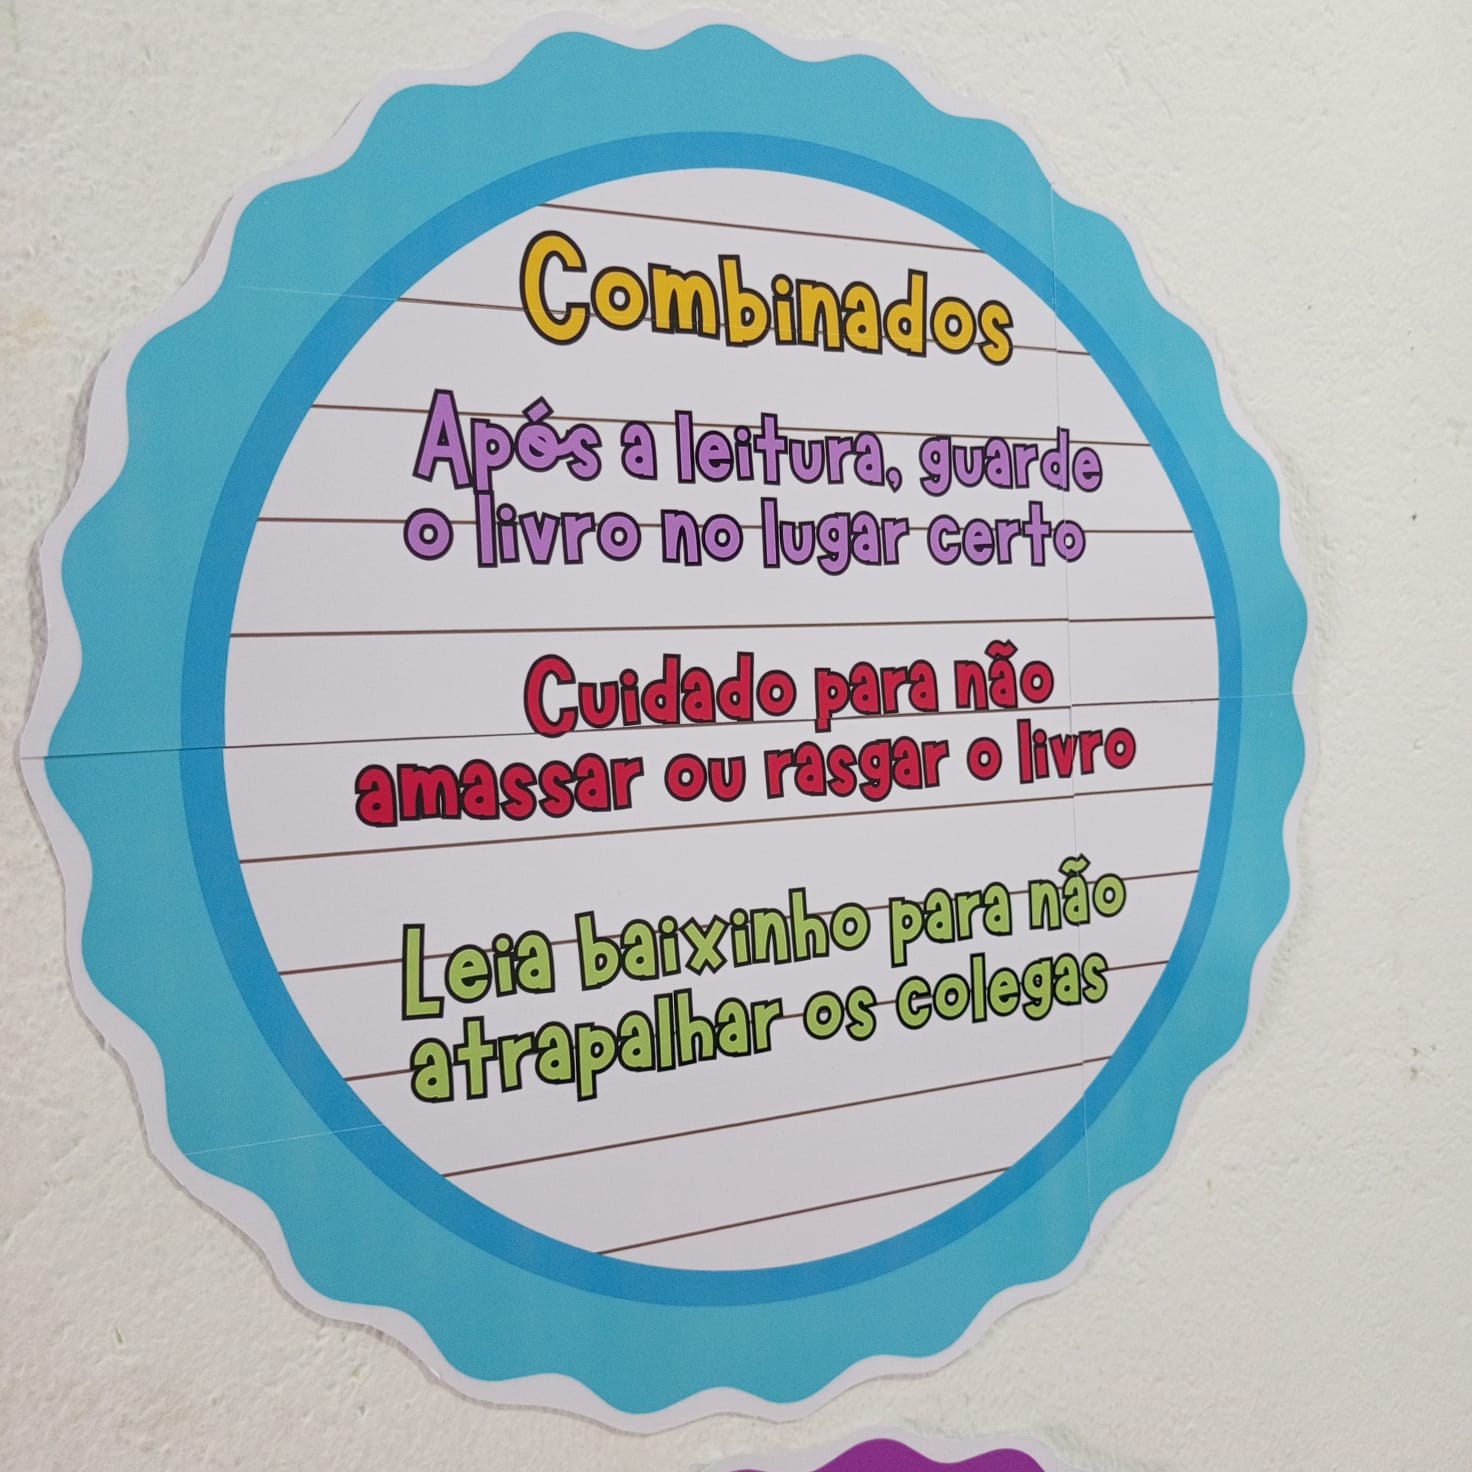 Combinados
Após a leitura, guarde
o livro no lugar certo
Cuidado para não
amassar ou rasgar o livro
Leia baixinho para não
atrapalhar os colegas